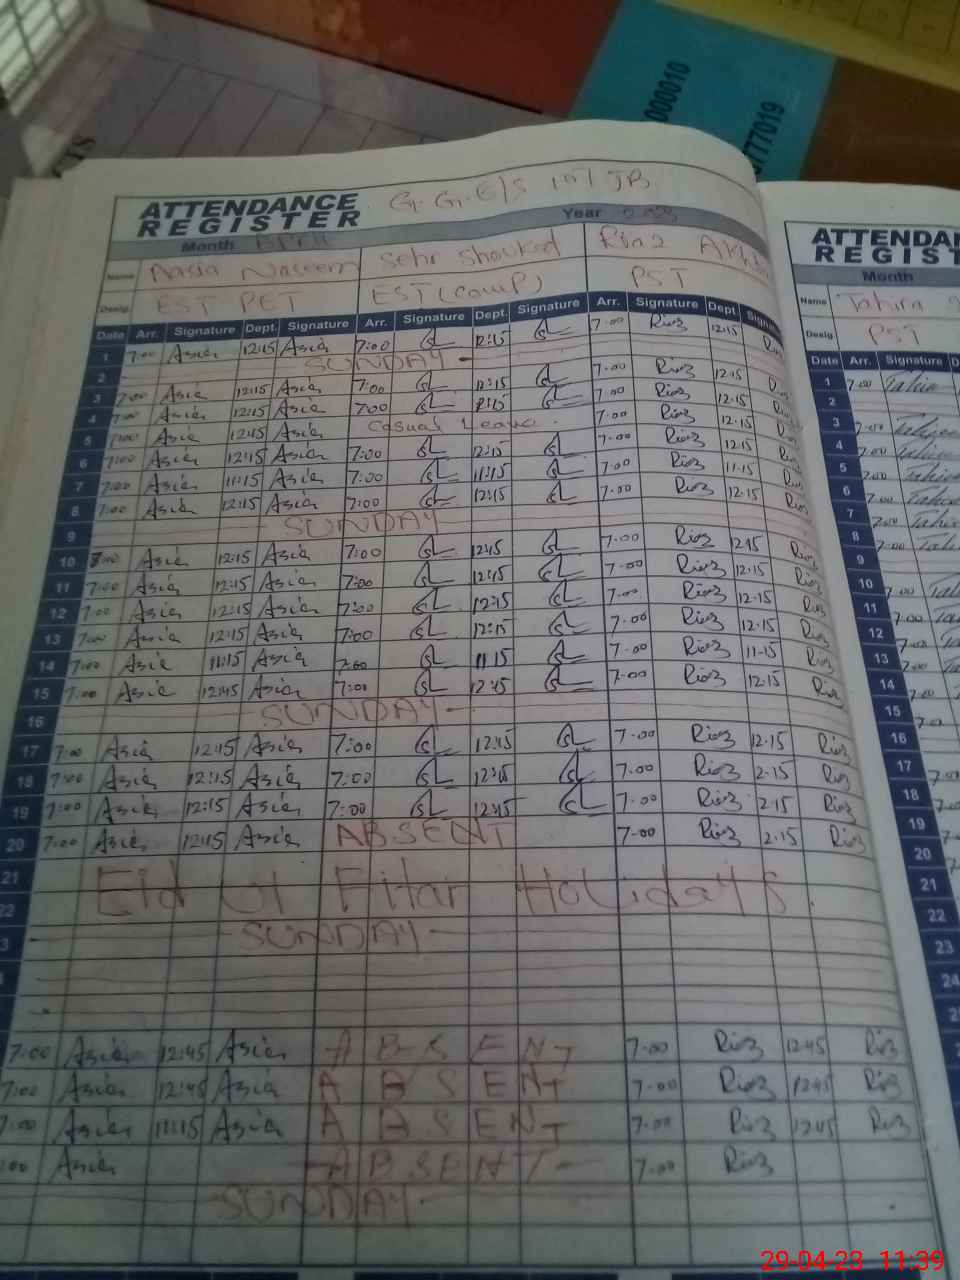 000010
777019
ATTENDANCE
REGISTER
G.G.E/S 107 JB
Month April Year 2023
Name Aasia Naseem Sehr Shoukat Riaz
Desig. EST PET EST (Comp) PST
Date Arr. Signature Dept. Signature Arr. Signature Dept. Signature Arr. Signature Dept.
1 7:00 Asia 12:15 Asia 7:00 12:15 7-00 Riaz 12-15 Riaz
2 SUNDAY
3 7:00 Asia 12:15 Asia 7:00 12:15 7-00 Riaz 12-15
4 7:00 Asia 12:15 Asia 7:00 12:15 7-00 Riaz 12-15
5 7:00 Asia 12:45 Asia Casual Leave. 7-00 Riaz 12-15
6 7:00 Asia 12:15 Asia 7:00 12:15 7-00 Riaz 12-15
7 7:00 Asia 11:15 Asia 7:00 11:15 7-00 Riaz 11-15
8 7:00 Asia 12:15 Asia 7:00 12:15 7-00 Riaz 12-15 Riaz
9 SUNDAY
10 7:00 Asia 12:15 Asia 7:00 12:15 7-00 Riaz 12-15 Riaz
11 7:00 Asia 12:45 Asia 7:00 12:15 7-00 Riaz 12-15 Riaz
12 7:00 Asia 12:15 Asia 7:00 12:15 7-00 Riaz 12-15 Riaz
13 7:00 Asia 12:45 Asia 7:00 12:15 7-00 Riaz 12-15 Riaz
14 7:00 Asia 11:15 Asia 7:00 11:15 7-00 Riaz 11-15 Riaz
15 7:00 Asia 12:45 Asia 7:00 12:45 7-00 Riaz 12-15 Riaz
16 SUNDAY
17 7:00 Asia 12:15 Asia 7:00 12:45 7-00 Riaz 12-15 Riaz
18 7:00 Asia 12:15 Asia 7:00 12:15 7-00 Riaz 2-15 Riaz
19 7:00 Asia 12:15 Asia 7:00 12:45 7-00 Riaz 2-15 Riaz
20 7:00 Asia 12:45 Asia ABSENT 7-00 Riaz 2-15 Riaz
21 Eid ul Fitar Holidays.
22
3 SUNDAY
7:00 Asia 12:45 Asia ABSENT 7-00 Riaz 12-45 Riaz
7:00 Asia 12:45 Asia ABSENT 7-00 Riaz 12-45 Riaz
7:00 Asia 11:15 Asia ABSENT 7-00 Riaz 12-45 Riaz
:00 Asia ABSENT 7-00 Riaz
SUNDAY
REGIST
Month
Name Tahira
Desig PST
Date Arr. Signature
1 7-00 Tahira
2
3 7-00 Tahira
4 7-00 Tahira
5 7-00 Tahira
6 7-00 Tahira
7 7-00
8 7-00
9
10 7-00
11 7-00
12 7-00
13 7-00
14 7-00
15
16
17
18
19
20
21
22
23
24
29-04-23 11:39